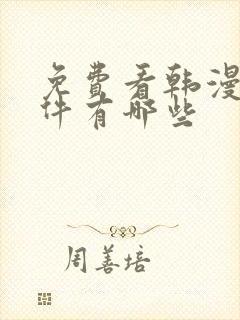 免费看韩漫
件有哪些
周善培